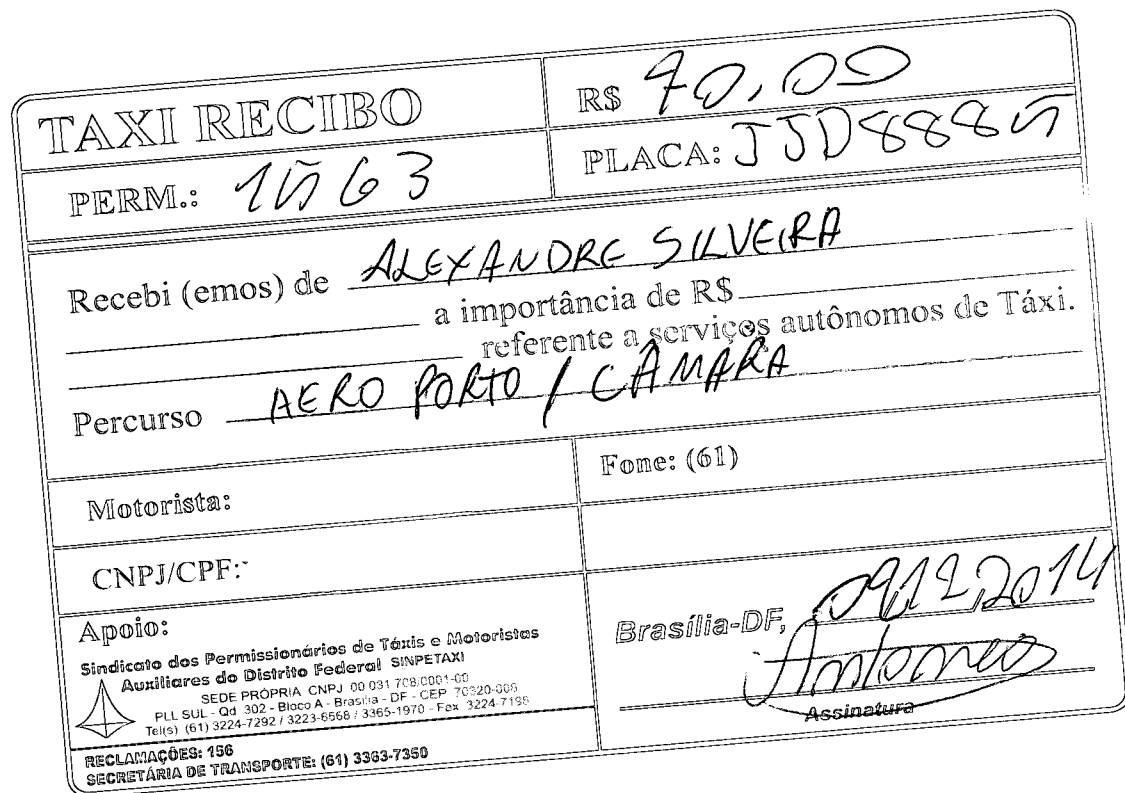 TAXI RECIBO
R$ 70,00
PERM.: 1563
PLACA: JJD8885
Recebi (emos) de ALEXANDRE SILVEIRA
a importância de R$
referente a serviços autônomos de Táxi.
Percurso AERO PORTO / CÂMARA
Motorista:
Fone: (61)
CNPJ/CPF:
Apoio:
Sindicato dos Permissionários de Táxis e Motoristas
Auxiliares do Distrito Federal SINPETAXI
SEDE PRÓPRIA CNPJ 00 031 708/0001-00
PLL SUL - Qd 302 - Bloco A - Brasília - DF - CEP 70320-006
Tel(s) (61) 3224-7292 / 3223-6568 / 3365-1970 - Fax 3224-7198
RECLAMAÇÕES: 156
SECRETÁRIA DE TRANSPORTE: (61) 3363-7350
Brasília-DF, 09,12,2014
Assinatura